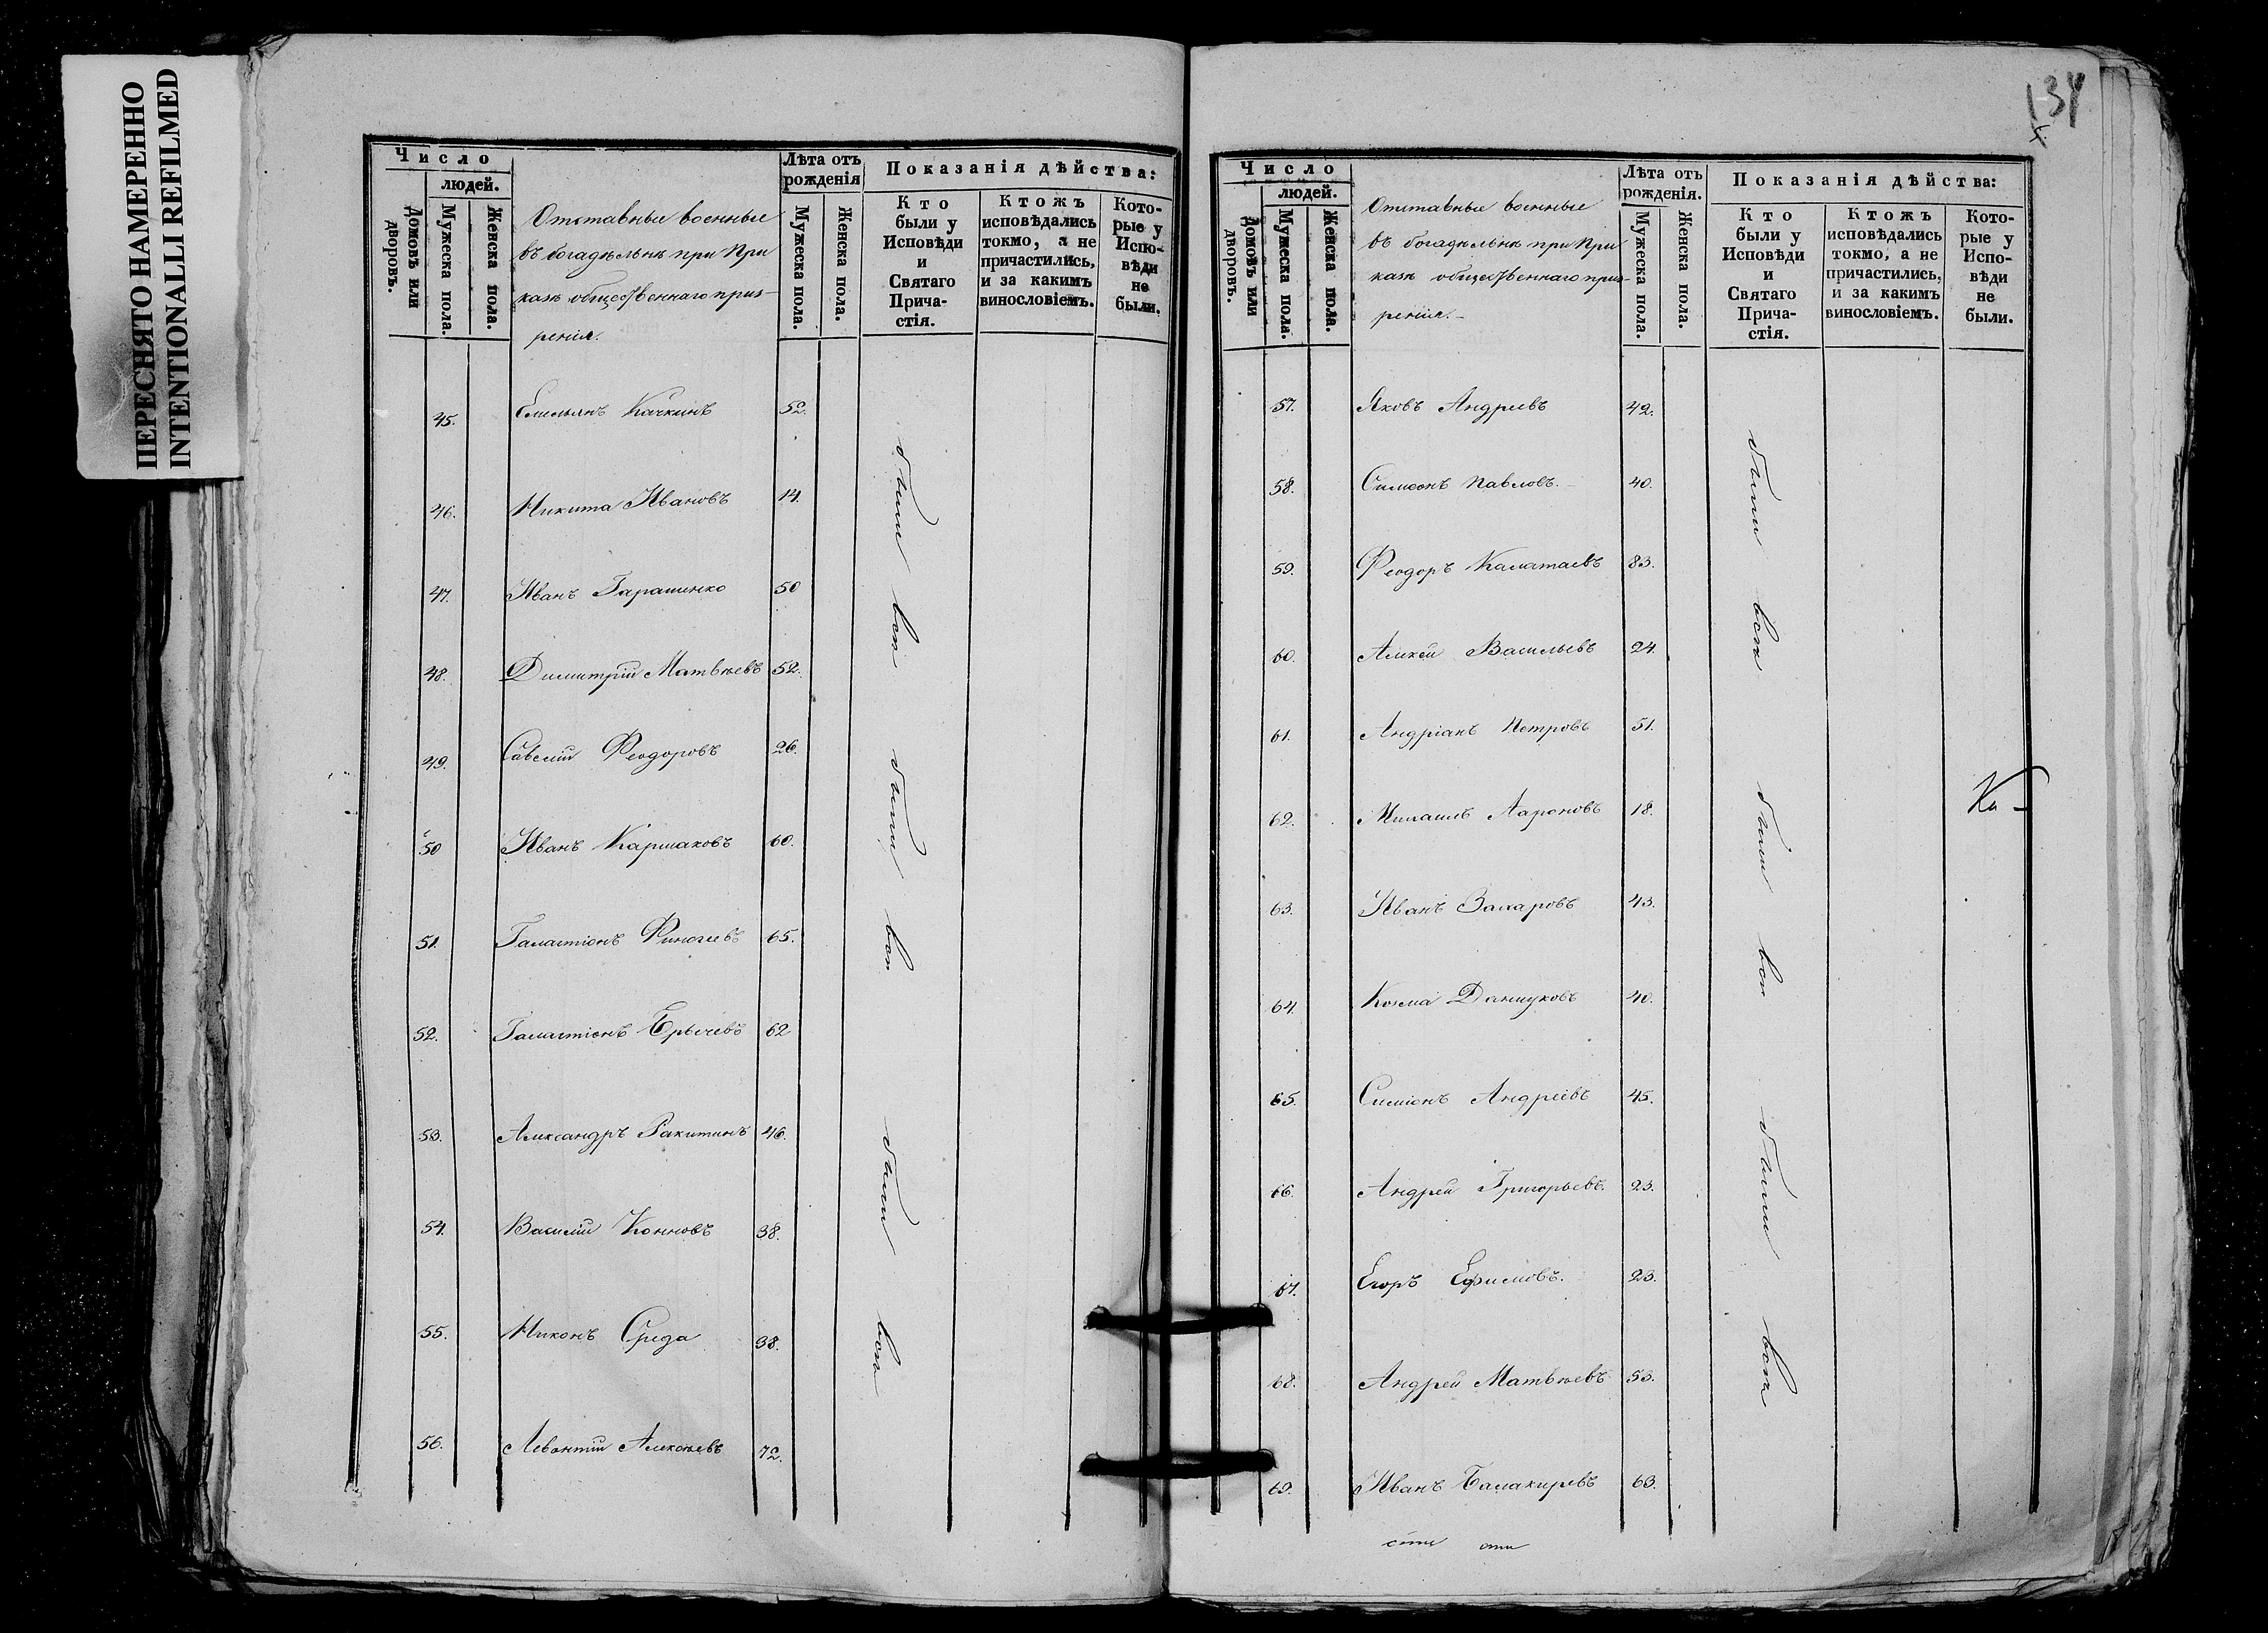 ПЕРЕСНЯТО НАМЕРЕННО
INTENTIONALLI REFILMED
Число
людей.
Домовъ или дворовъ.
Мужеска пола.
Женска пола.
Отставные военные
въ богадѣльнѣ при При
казѣ общественнаго приз-
рѣнія.
Лѣта отъ рожденія
Мужеска пола.
Женска пола.
Показанія дѣйства:
Кто были у Исповѣди и Святаго Прича-стія.
Ктожъ исповѣдались токмо, а не причастились, и за какимъ винословіемъ.
Кото-рые у Испо-вѣди не были.
45. Емельянъ Качкинъ 52.
46. Никита Ивановъ 14.
47. Иванъ Гарашенко 50
48. Димитрій Матвѣевъ 52.
49. Савелій Феодоровъ 26.
50 Иванъ Кармаковъ 60.
51. Галактіонъ 65.
52. Галактіонъ 62
53. Александръ Ракитинъ 46.
54. Василій Конновъ 38.
55. Никонъ Среда 38.
56. Левонтій Алексѣевъ 72.
были всѣ
были всѣ
были всѣ
134
Число
людей.
Домовъ или дворовъ.
Мужеска пола.
Женска пола.
Отставные военные
въ богадѣльнѣ при При
казѣ общественнаго приз-
рѣнія.-
Лѣта отъ рожденія.
Мужеска пола.
Женска пола.
Показанія дѣйства:
Кто были у Исповѣди и Святаго Прича-стія.
Ктожъ исповѣдались токмо, а не причастились, и за какимъ винословіемъ.
Кото-рые у Испо-вѣди не были.
57. Яковъ Андреевъ 42.
58. Симеонъ Павловъ. 40.
59. Феодоръ Калатаевъ 83.
60. Алексѣй Васильевъ 24.
61. Андріанъ Петровъ 51.
62. Михаилъ Аароновъ 18.
63. Иванъ Захаровъ 43.
64. Козма Данщуковъ 40.
65. Симіонъ Андреевъ 45.
66. Андрей Григорьевъ. 23.
67. Егоръ Ефимовъ. 23.
68. Андрей Матвѣевъ 53.
69. Иванъ Балакиревъ 63.
были всѣ
были всѣ
были всѣ